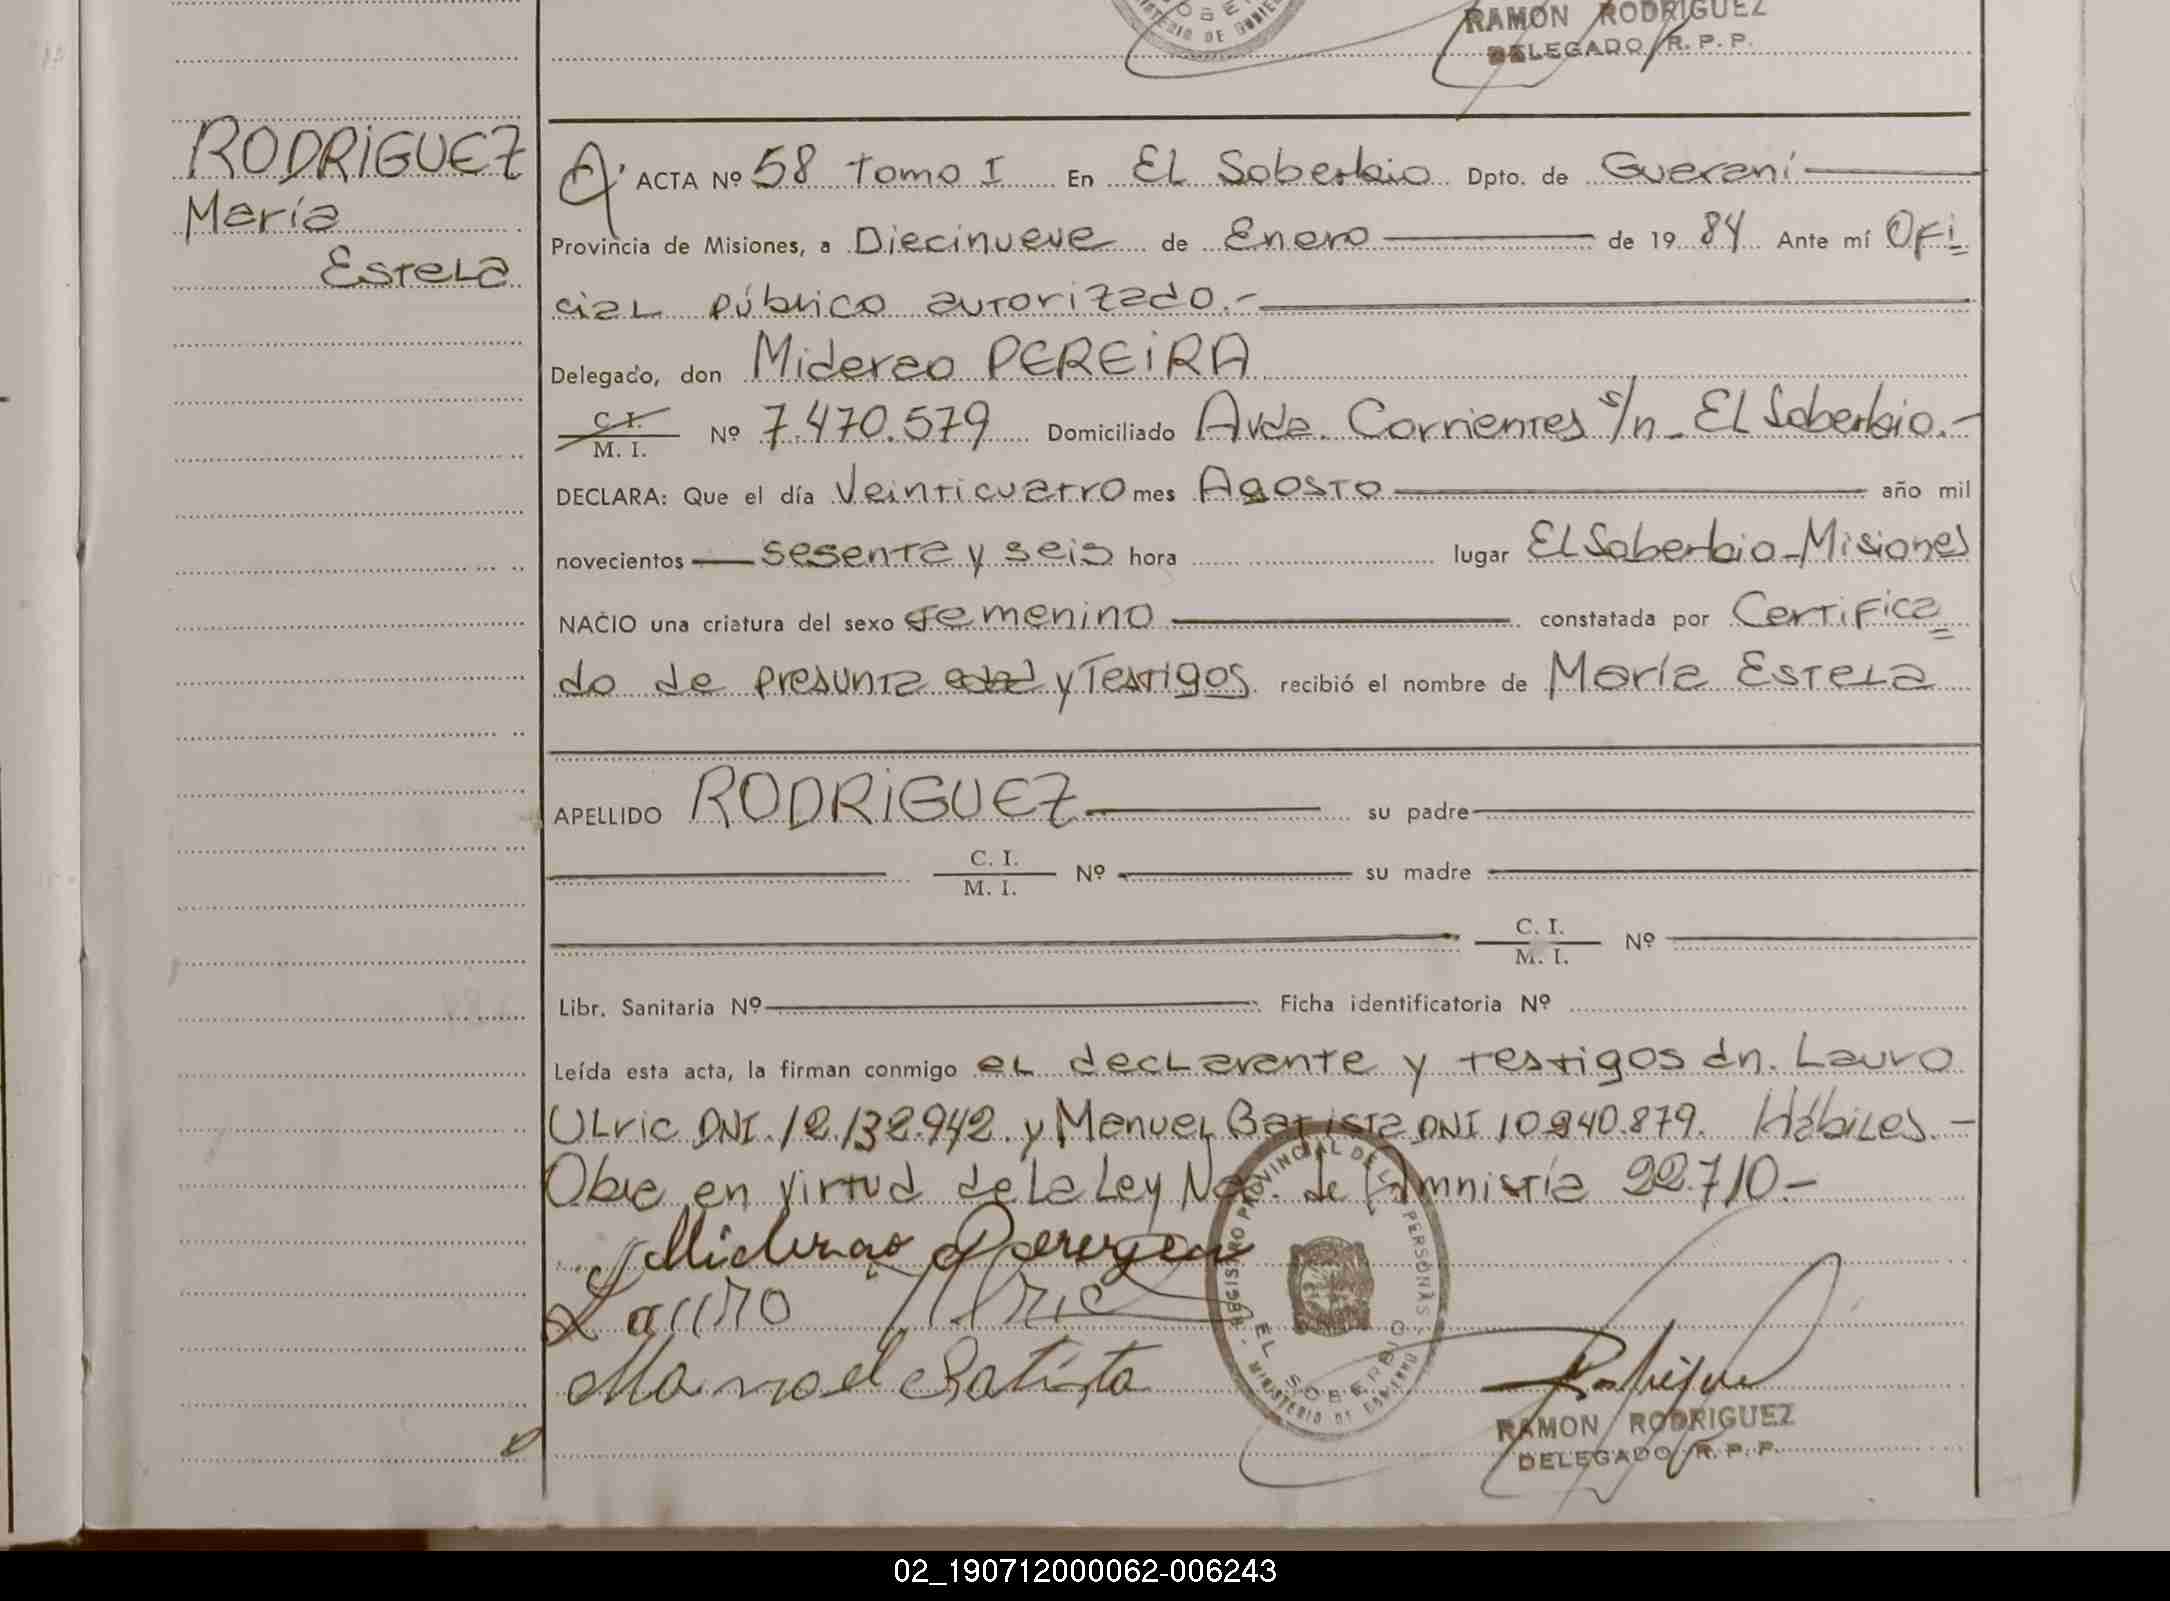 RAMON RODRIGUEZ
DELEGADO R. P. P.
RODRIGUEZ
María
Estela
A' ACTA Nº 58 Tomo I En EL Soberbio Dpto. de Guaraní
Provincia de Misiones, a Diecinueve de Enero de 19 84 Ante mí Ofi
cial público autorizado.-
Delegado, don Miderao PEREiRA
C. I.
M. I. Nº 7.470.579 Domiciliado Avda. Corrientes s/n - EL Soberbio.-
DECLARA: Que el día Veinticuatro mes Agosto año mil
novecientos sesenta y seis hora lugar El Soberbio-Misiones
NACIO una criatura del sexo femenino constatada por Certifica
do de presunta edad y Testigos recibió el nombre de María Estela
APELLIDO RODRiGUEZ su padre
C. I.
M. I. Nº su madre
C. I.
M. I. Nº
Libr. Sanitaria Nº Ficha identificatoria Nº
Leída esta acta, la firman conmigo el declarante y testigos dn. Lauro
Ulric DNI. 12.132.942. y Manuel Batista DNI 10.940.879. Hábiles.-
Obre en virtud de la Ley Nac. de Amnistía 22.710.-
Miderao Pereira
Lauro Ulric
Manoel Batista
REGISTRO PROVINCIAL DE LAS PERSONAS
EL SOBERBIO
MINISTERIO DE GOBIERNO
Rodriguez
RAMON RODRIGUEZ
DELEGADO R. P. P.
02_190712000062-006243